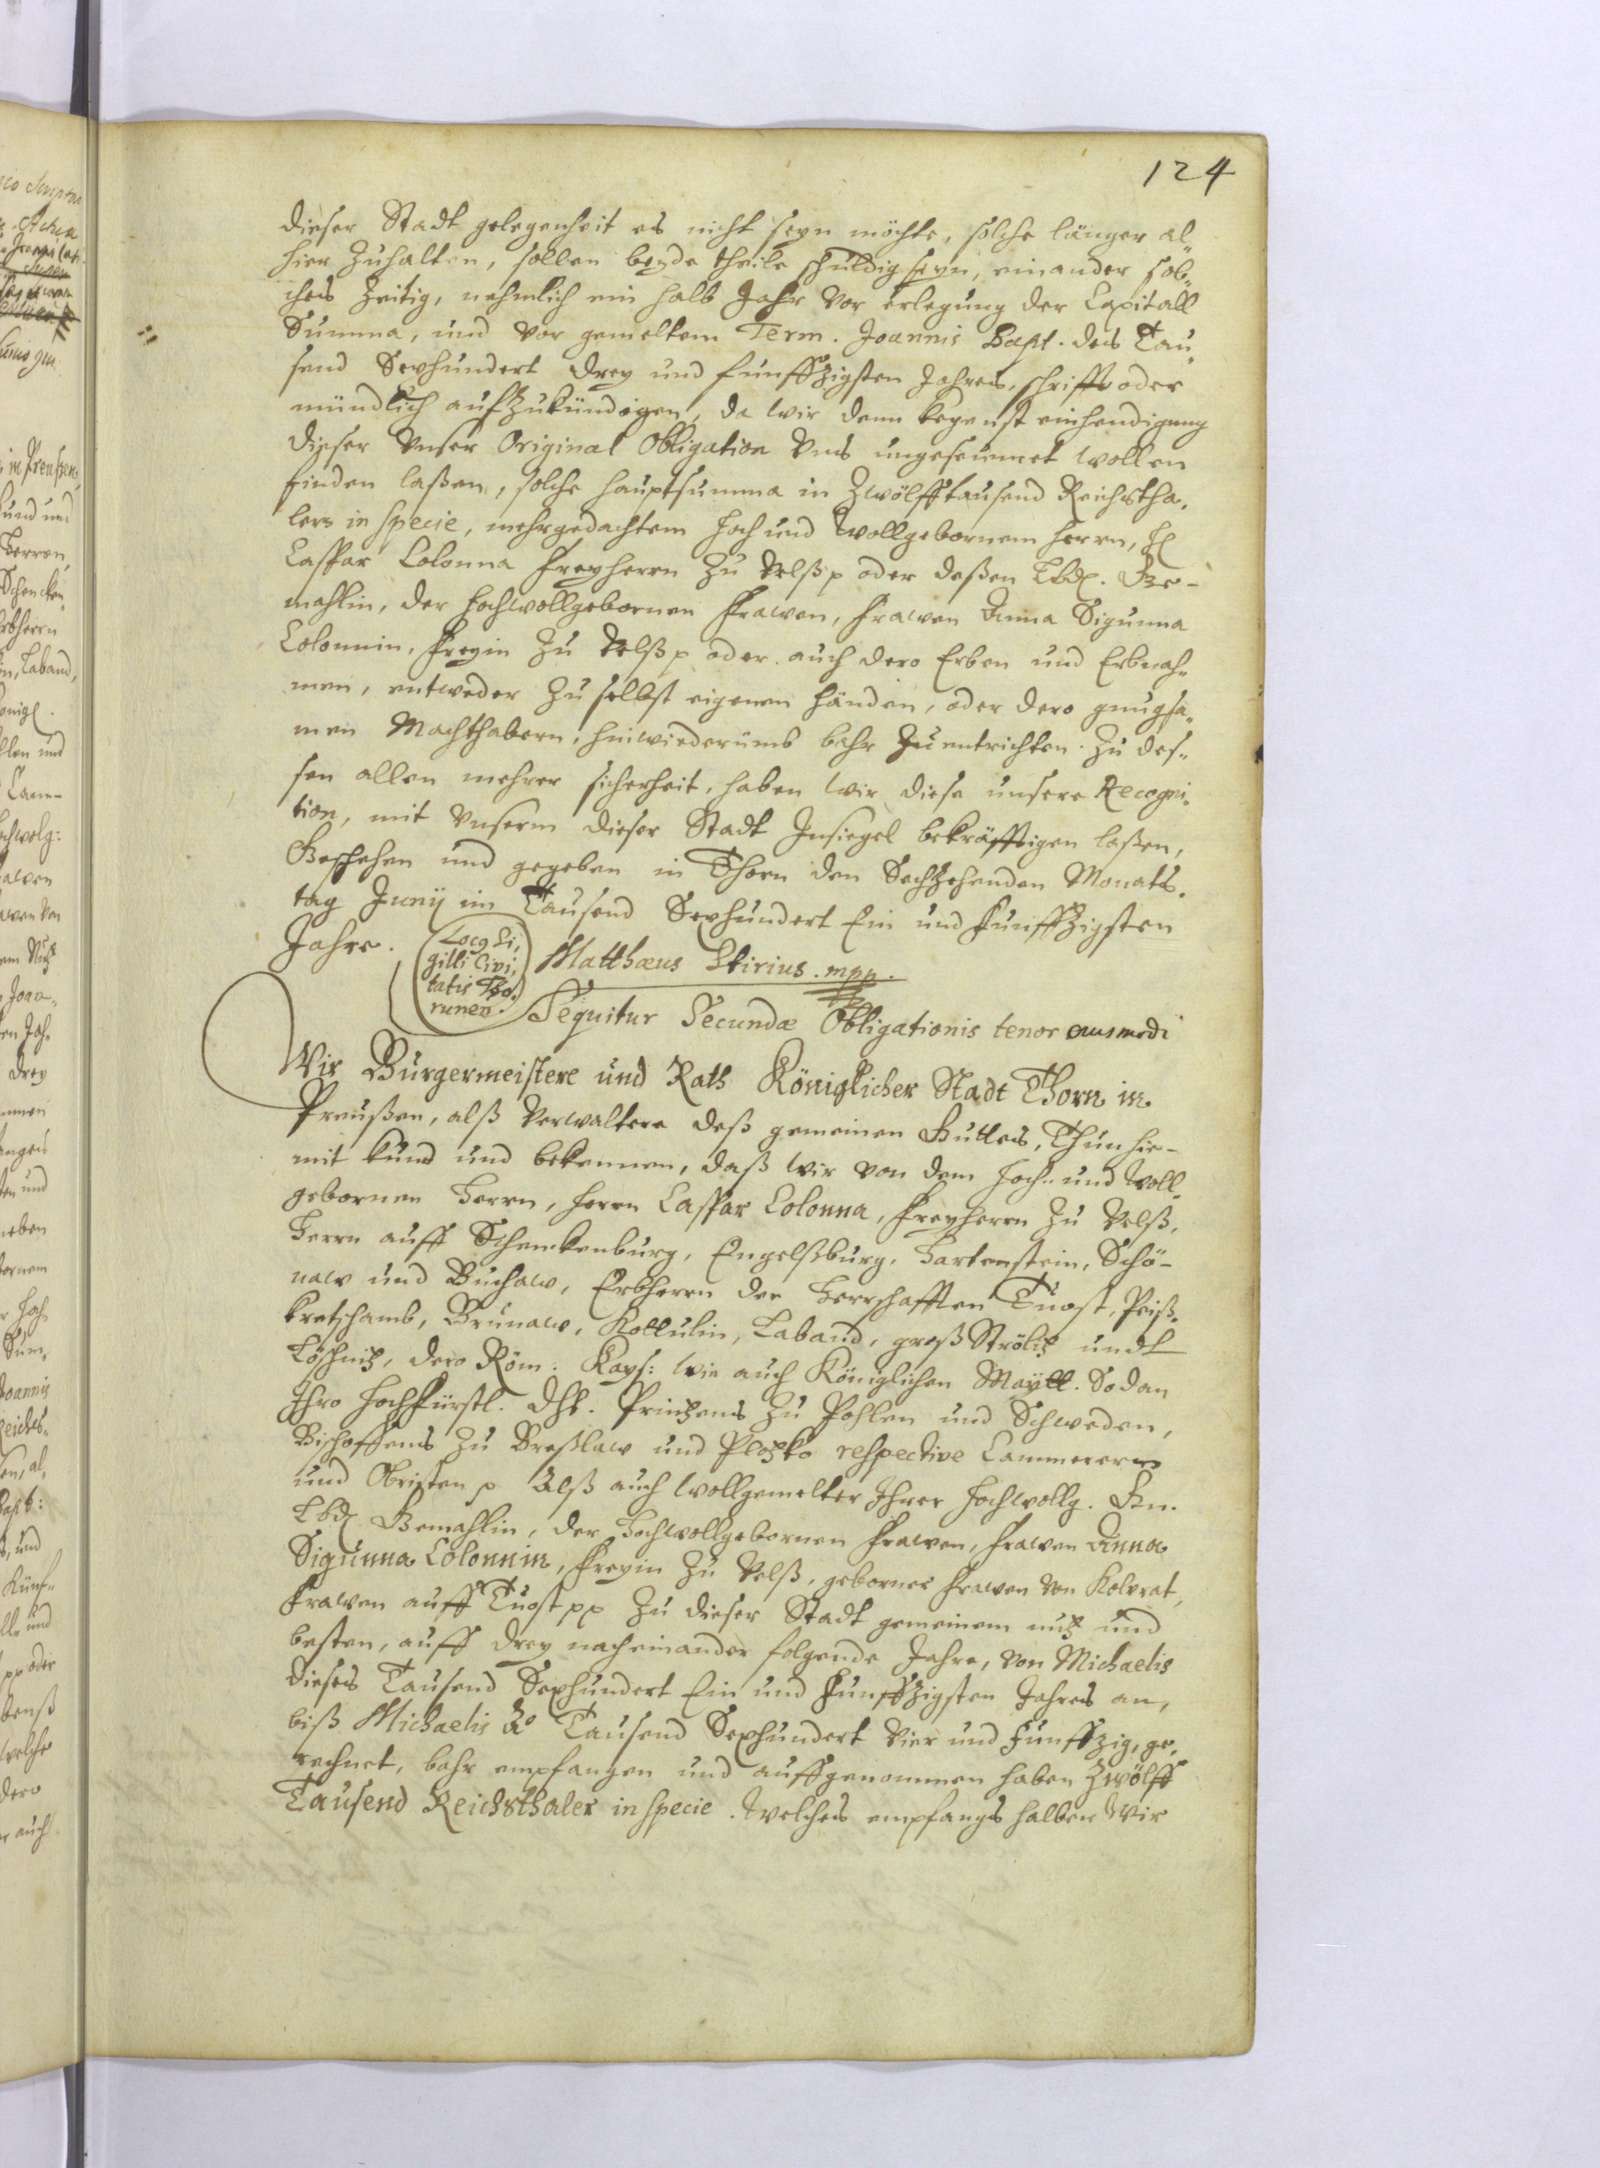 124
dieser Stadt gelegenheit es nicht seyn möchte, solche länger al-
hier zuhalten, sollen beyde theile schuldig seyn, einander sol-
ches zeitig, nehmlich ein halb Jahr vor erlegung der Capitall
Summa, und vor gemeltem Term. Joannis Bapt. des Tau-
send Sexhundert drey und funffzigsten Jahres, schrifft oder
mündlich auffzukündigen, da wir denn kegenst einhendigung
dieser Unser Original Obligation Uns ungeseumet wollen
finden laßen, solche hauptsumma in Zwölfftausend Reichstha-
lers in specie, mehrgedachtem hoch und wollgebornem herrn, H
Caspar Colonna freyherrn zu Velß p oder deßen Lbd. Ge-
mahlin, der hochwollgebornen frawen, frawen Anna Sigunna
Colonnin, freyin zu Velß p oder auch dero Erben und Erbnah-
men, entweder zu selbst eigenen händen, oder dero gnugsa-
men Machthabern, hinwiederümb bahr zu entrichten. Zu des-
sen allen mehrer sicherheit, haben wir diese unsere Recogni-
tion, mit Unserm dieser Stadt Insiegel bekräfftigen laßen,
Geschehen und gegeben in Thorn den Sechzehenden Monats-
tag Junij im Tausend Sexhundert Ein und funffzigsten
Jahre.
Loco Si-
gilli Civi-
tatis Tho-
runen.
Matthæus Stirius. mpp.
Sequitur Secundæ Obligationis tenor eiusmodi
Wir Bürgermeistere und Rath Königlicher Stadt Thorn in
Preußen, alß Verwaltere deß gemeinen Guttes, Thun hie-
mit kund und bekennen, daß wir von dem hoch- und woll-
gebornen Herrn, herrn Caspar Colonna, freyherrn zu Velß,
Herrn auff Schenckenburg, Engelßburg, Hartenstein, Schö-
naw und Buchaw, Erbherrn der Herrschafften Tuost, Peiß-
kretschamb, Brunaw, Kottulin, Laband, groß Strölitz undt
Löschnitz, dero Röm. Kays: wie auch Königlichen Maytt. Sodan
Ihro hochfürstl. Dhl. Printzens zu Pohlen und Schweden,
Bischoffens zu Breßlaw und Plotzko respective Cammerern
und Obristen p Alß auch wollgemelter Ihrer hochwollg. Gn.
Lbd Gemahlin, der Hochwollgebornen frawen, frawen Anna
Sigunna Colonnin, freyin zu Velß, geborner frawen von Kolvrat,
frawen auff Tuost pp zu dieser Stadt gemeinem nutz und
besten, auff drey nacheinander folgende Jahre, von Michaelis
dieses Tausend Sexhundert Ein und funffzigsten Jahres an,
biß Michaelis Ao Tausend Sexhundert vier und funffzig, ge-
rechnet, bahr empfangen und auffgenommen haben Zwölff
Tausend Reichsthaler in specie. Welches empfangs halben Wir